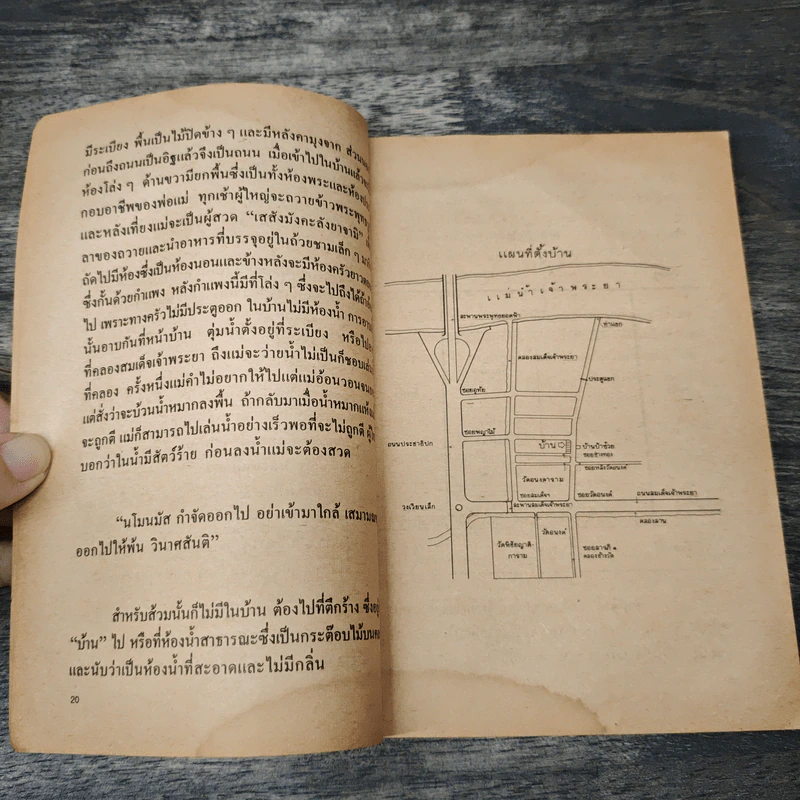 มีระเบียง พื้นเป็นไม้ปิดข้าง ๆ และมีหลังคามุงจาก
ก่อนถึงถนนเป็นอิฐแล้วจึงเป็นถนน เมื่อเข้าไปในบ้านแล้ว
ห้องโล่ง ๆ ด้านขวามียกพื้นซึ่งเป็นทั้งห้องพระและห้อง
กอบอาชีพของพ่อแม่ ทุกเช้าผู้ใหญ่จะถวายข้าวพระพุทธ
และหลังเที่ยงแม่จะเป็นผู้สวด “เสสังมังคะลังยาจามิ”
ลาของถวายและนำอาหารที่บรรจุอยู่ในถ้วยชามเล็ก ๆ
ถัดไปมีห้องซึ่งเป็นห้องนอนและข้างหลังจะมีห้องครัวยาว
ซึ่งกั้นด้วยกำแพง หลังกำแพงนี้มีที่โล่ง ๆ ซึ่งจะไปถึงได้
ไป เพราะทางครัวไม่มีประตูออก ในบ้านไม่มีห้องน้ำ
นั้นอาบกันที่หน้าบ้าน ตุ่มน้ำตั้งอยู่ที่ระเบียง หรือไป
ที่คลองสมเด็จเจ้าพระยา ถึงแม้จะว่ายน้ำไม่เป็นก็ชอบ
ที่คลอง ครั้งหนึ่งแม่คำไม่อยากให้ไปแต่แม่อ้อนวอนจน
แต่สั่งว่าจะบ้วนน้ำหมากลงพื้น ถ้ากลับมาเมื่อน้ำหมากแห้ง
จะถูกตี แม่ก็สามารถไปเล่นน้ำอย่างเร็วพอที่จะไม่ถูกตี
บอกว่าในน้ำมีสัตว์ร้าย ก่อนลงน้ำแม่จะต้องสวด
“นโมนมัส กำจัดออกไป อย่าเข้ามาใกล้
ออกไปให้พ้น วินาศสันติ”
สำหรับส้วมนั้นก็ไม่มีในบ้าน ต้องไปที่ตึกร้าง
“บ้าน” ไป หรือที่ห้องน้ำสาธารณะซึ่งเป็นกระต๊อบไม้บน
และนับว่าเป็นห้องน้ำที่สะอาดและไม่มีกลิ่น
20
แผนที่ตั้งบ้าน
แม่น้ำเจ้าพระยา
สะพานพระพุทธยอดฟ้า
ท่าแยก
คลองสมเด็จเจ้าพระยา
ซอยอุทัย
ซอยพญาไม้
ถนนประชาธิปก
บ้าน
บ้านป้าช้วย
ซอยช่างทอง
ซอยหลังวัดอนงค์
วัดอนงคาราม
ซอยสมเด็จฯ
ซอยวัดอนงค์
ถนนสมเด็จเจ้าพระยา
สะพานสมเด็จเจ้าพระยา
วงเวียนเล็ก
คลองสาน
วัดพิชัยญาติการาม
วัดอนงค์